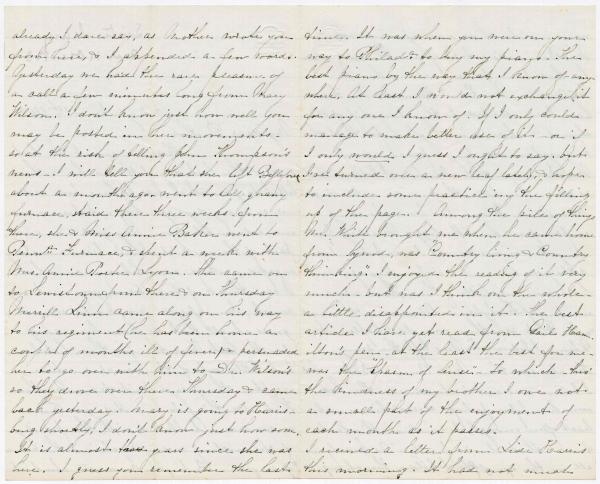 already I dare say, as Mother wrote you
from there, & I appended a few words.
Yesterday we had the rare pleasure of
a call a few minutes long from Mary
Wilson. I don't know just how well you
may be posted in her movements -
so at the risk of telling John Thompson's
news - I will tell you that she left Bellefonte
about a month ago, went to Allghany
furnace, staid there three weeks. from
there, she & Miss Annie Baker went to
Penn Furnace, & spent a week with
Mrs. Annie Lyon. She came on
to Lewistown from there & on Thursday
Merrill Linn came along on his way
to his regiment (he has been home a
couple of months ill of fever) & persuaded
her to go over with him to Dr. Wilson's
so they drove over there Thursday & came
back yesterday. Mary is going to Harris-
burg shortly, I don't know just how soon.
It is almost two years since she was
here. I guess you remember the last
time. It was when you were on your
way to Philad. to buy my piano. The
best piano by the way that I know of any
where. At least I would not exchange it
for any one I know of. If I only could
manage to make better use of it - or if
I only would I guess I ought to say. but
I've turned over a new leaf lately, & hope
to include some practice in the filling
up of the page. Among the pile of things
Mr. White brought me when he came home
from Lynn, was "Country living & Country
thinking". I enjoyed the reading of it very
much - but was I think on the whole -
a little disappointed in it. The best
article I have yet read from Gail Ham-
ilton's pen - at the least the best for me -
was the - to which - thro'
the kindness of my brother I owe not
a small part of the enjoyment of
each month as it passes.
I recieved a letter from Lide Harris
this morning. It had not much